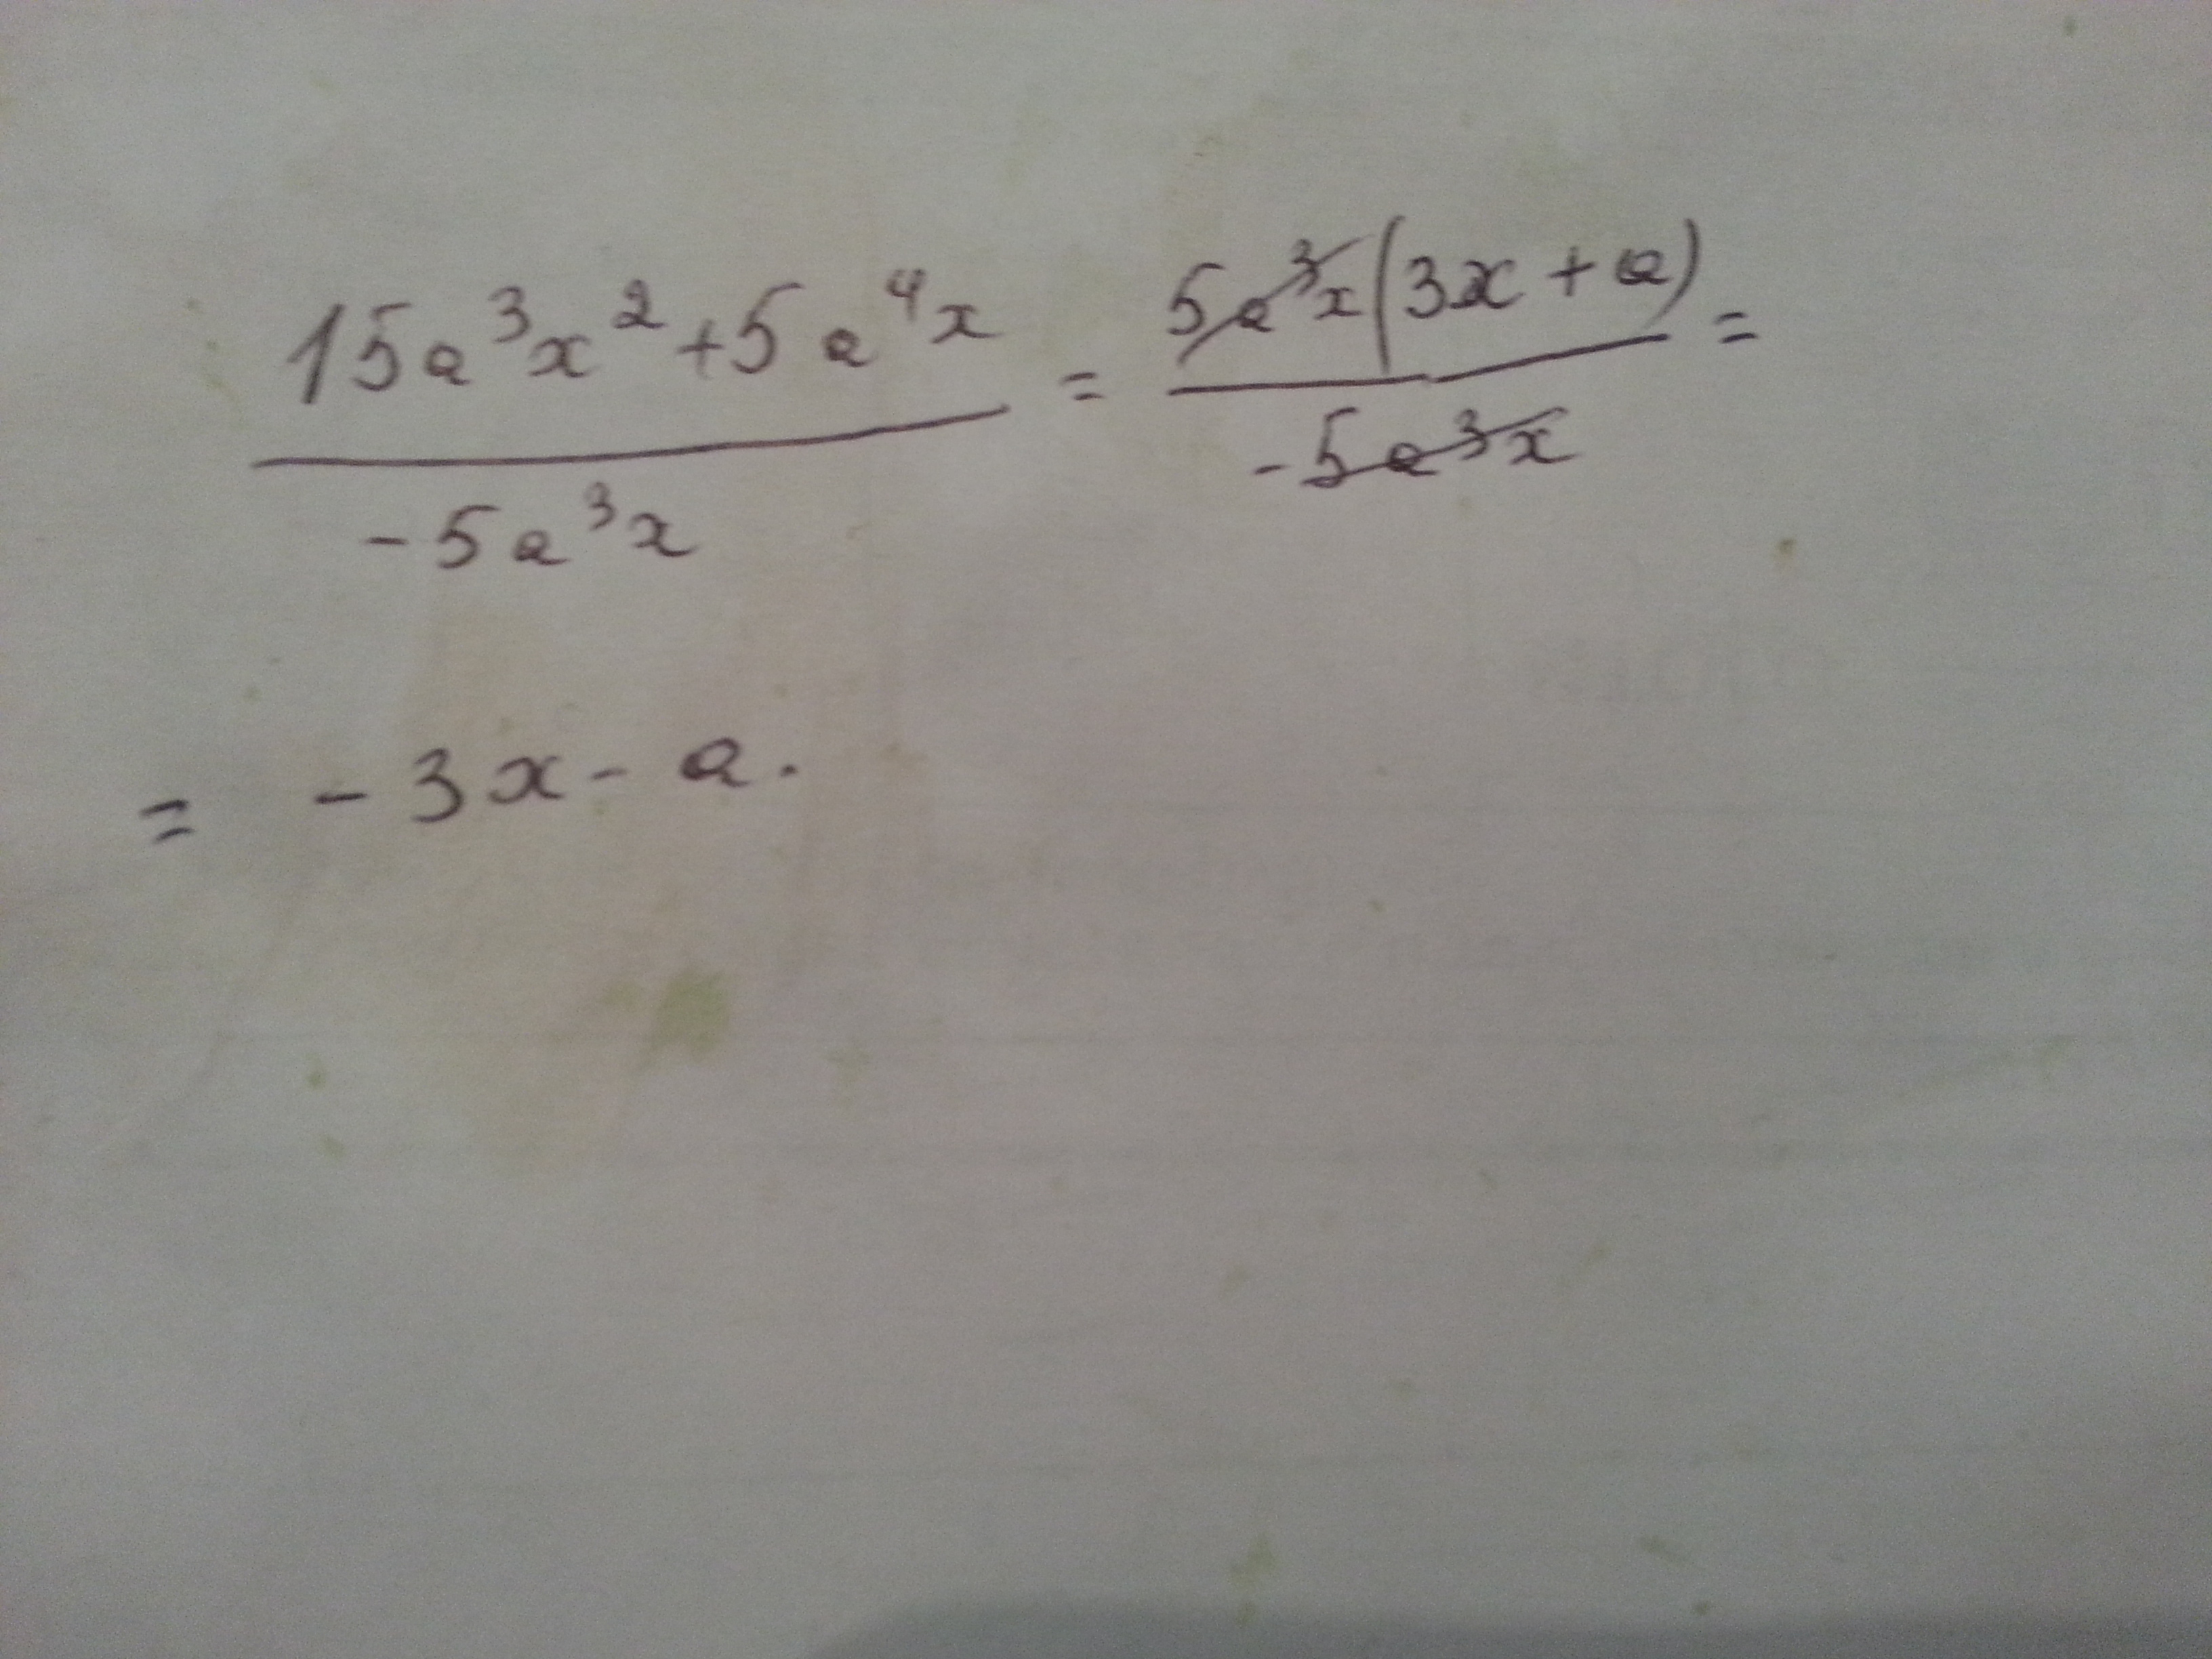 15a³x²+5a⁴x / -5a³x = 5a³x(3x+a) / -5a³x =
= -3x-a.